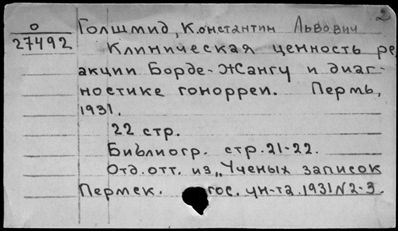 О
27492
Голшмид, Константин Львович
Клиническая ценность ре
акции Борде-Жангу и диаг-
ностике гонорреи. Пермь,
1931.
22 стр.
Библиогр. стр. 21-22.
Отд. отт. из „Ученых записок
Пермск. гос. ун-та. 1931 N 2-3.